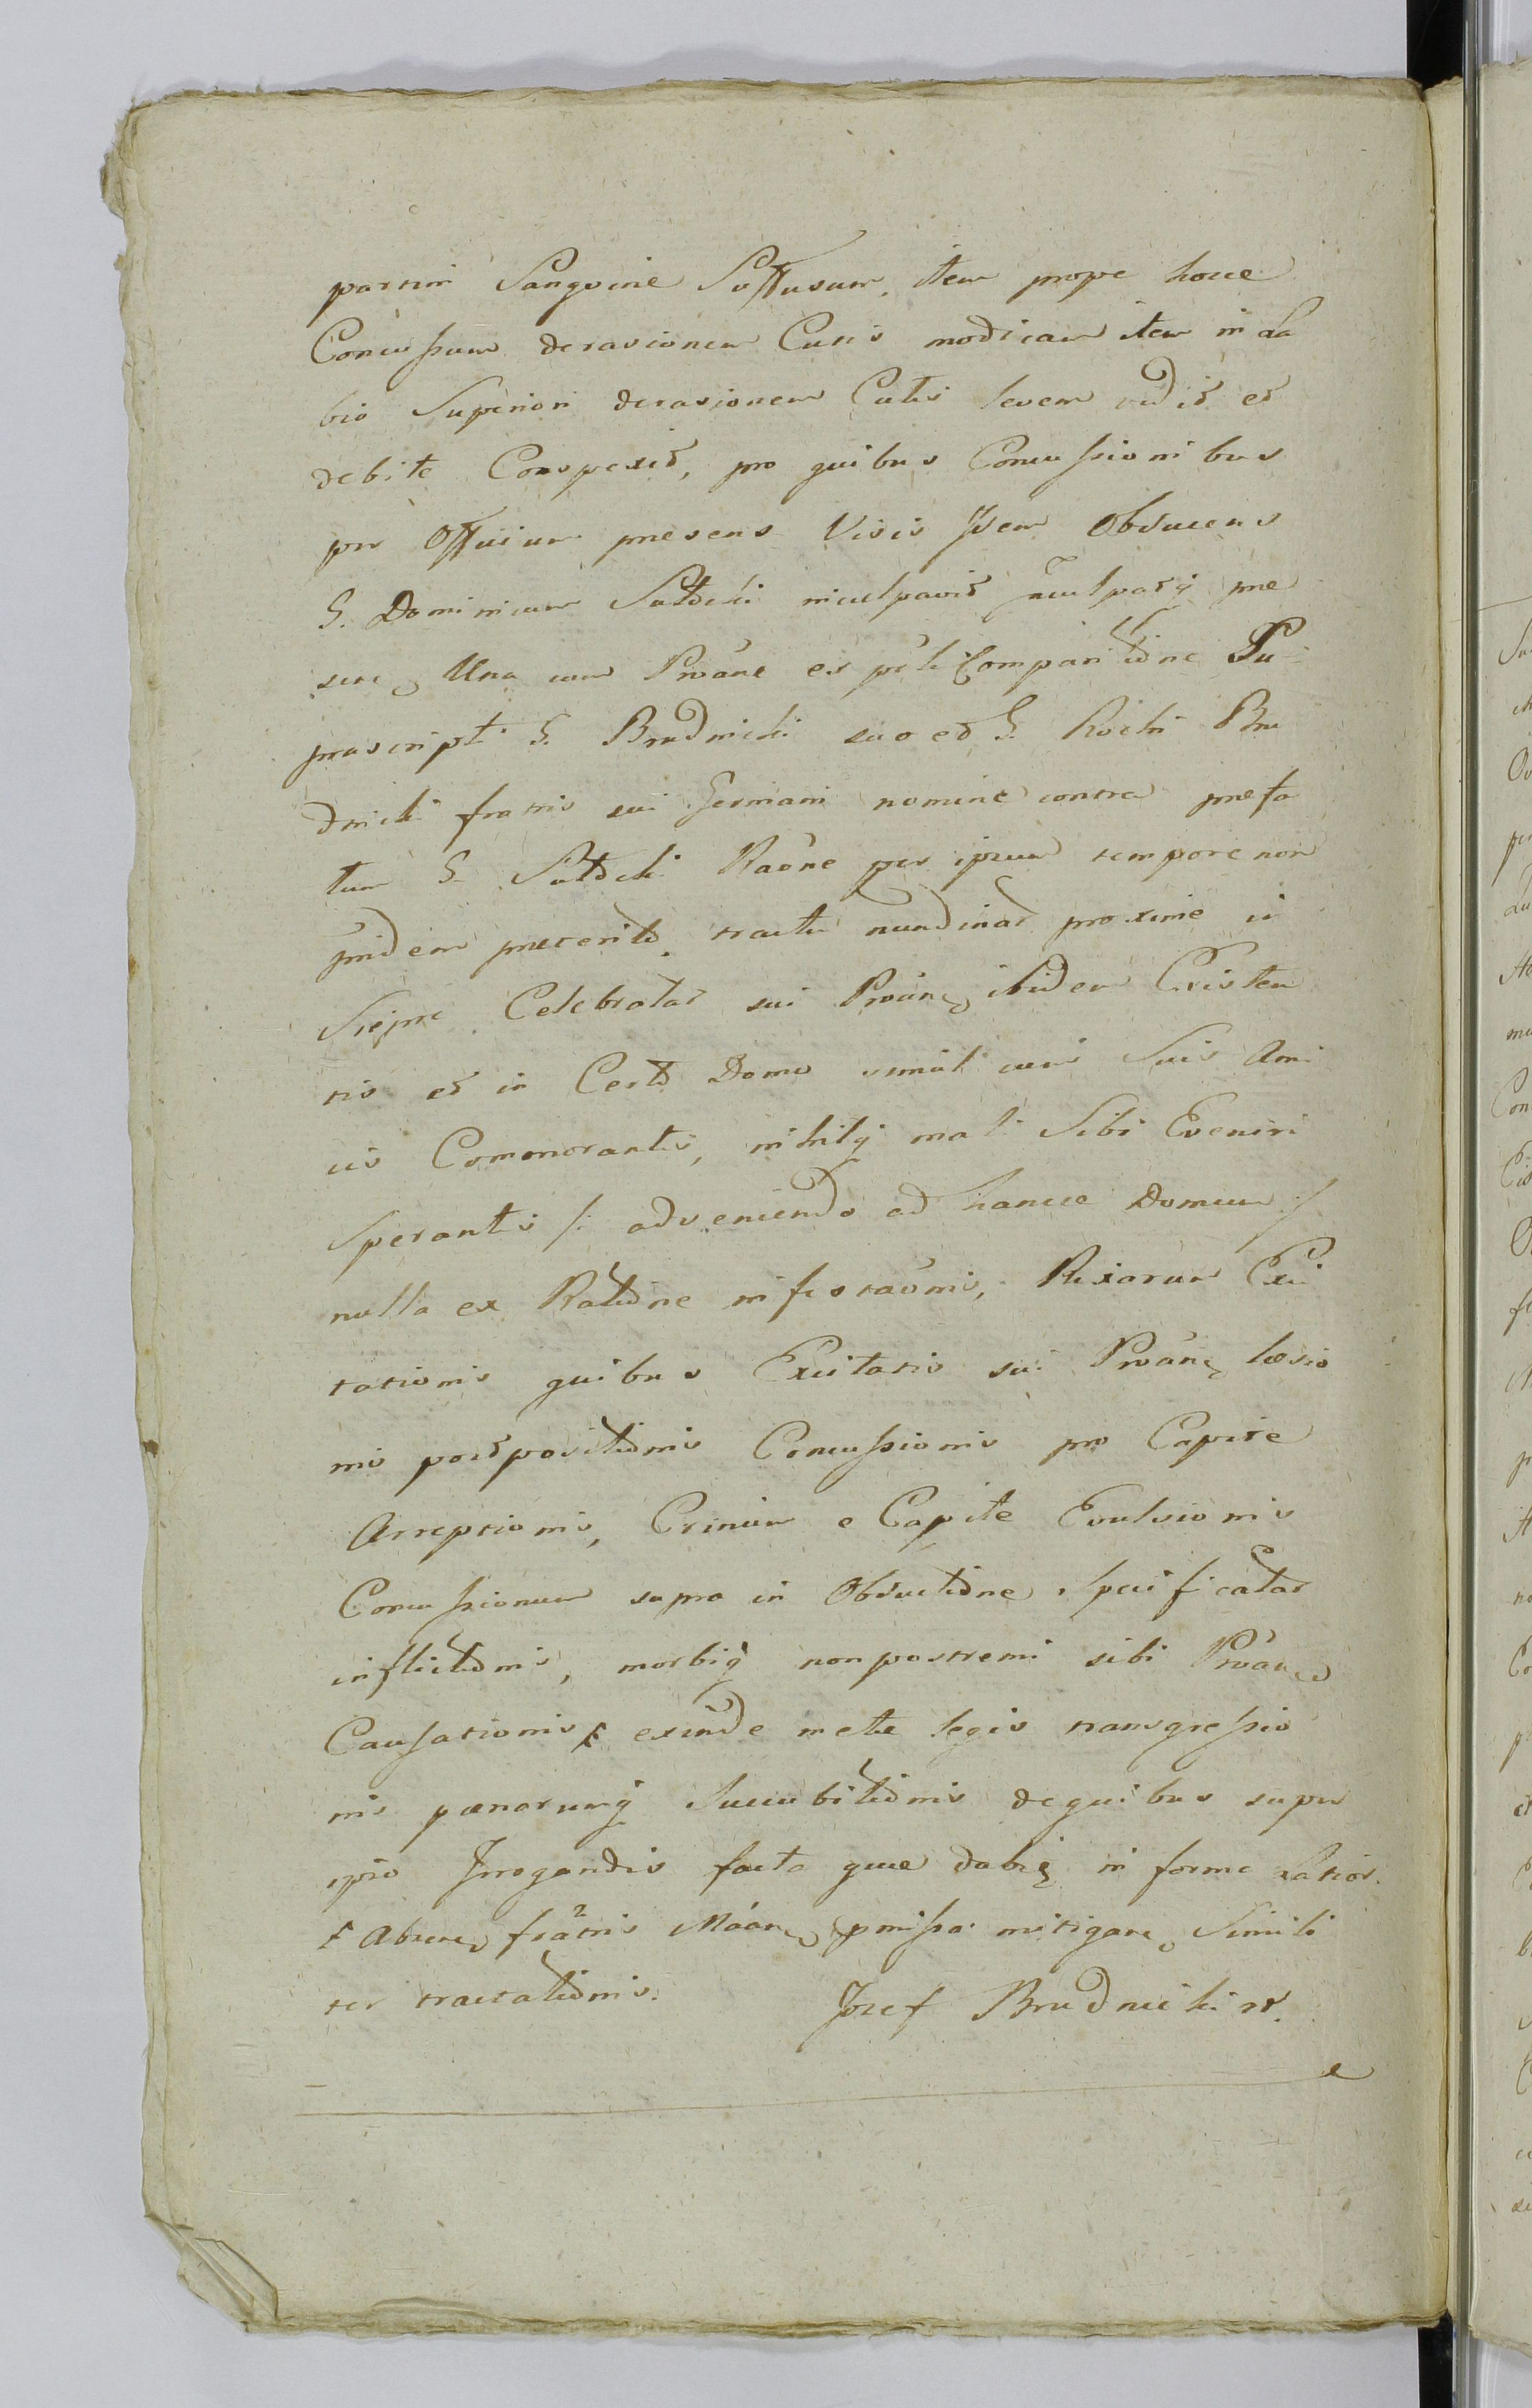 partim Sangvine Suffusum, item prope hocce
Concussum derasionem Cutis modicam item in La
bio Superiori derasionem Cutis levem vidit et
debite Conspexit, pro quibus Concussionibus
per Officium presens Visis Idem Obducens
G. Dominicum Sutocki inculpavit inculpatq pre
sene Una cum Prôane ex pti Comparitione
prascripti G. Brudnicki suo et G. Rochi Bru
dnicki fratris sui Germani nomine contra prefa
tum G. Sutocki Raône per ipsum tempore non
pridem preterito, tractu nundinar proxime in
Siepre Celebratar sui Prôane ibidem Existen
tis et in Certo Domo simul cum Suis Ami
cis Commorantis, nihilq mali Sibi Eveniri
Sperantis /: adveniendo ad hancce Domum :/
nulla ex Ratione infestaônis, Rixarum Exci
tationis quibus Excitatis sui Prôane læsio
nis postpositionis Concussionis pro Capite
Arreptionis, Crinium e Capite Evulsionis
Concussionum supra in Obductione specificatar
inflictionis, morbiq non postremi sibi Prôane
Causationis exinde mete legis transgressio
nis pœnarumq Succubitionis de quibus super
ipso Irrogandis facta quæ dabie in forma Latior.
fratris pmissa mitigare Simili
ter tractationis. Jozef Brudnicki